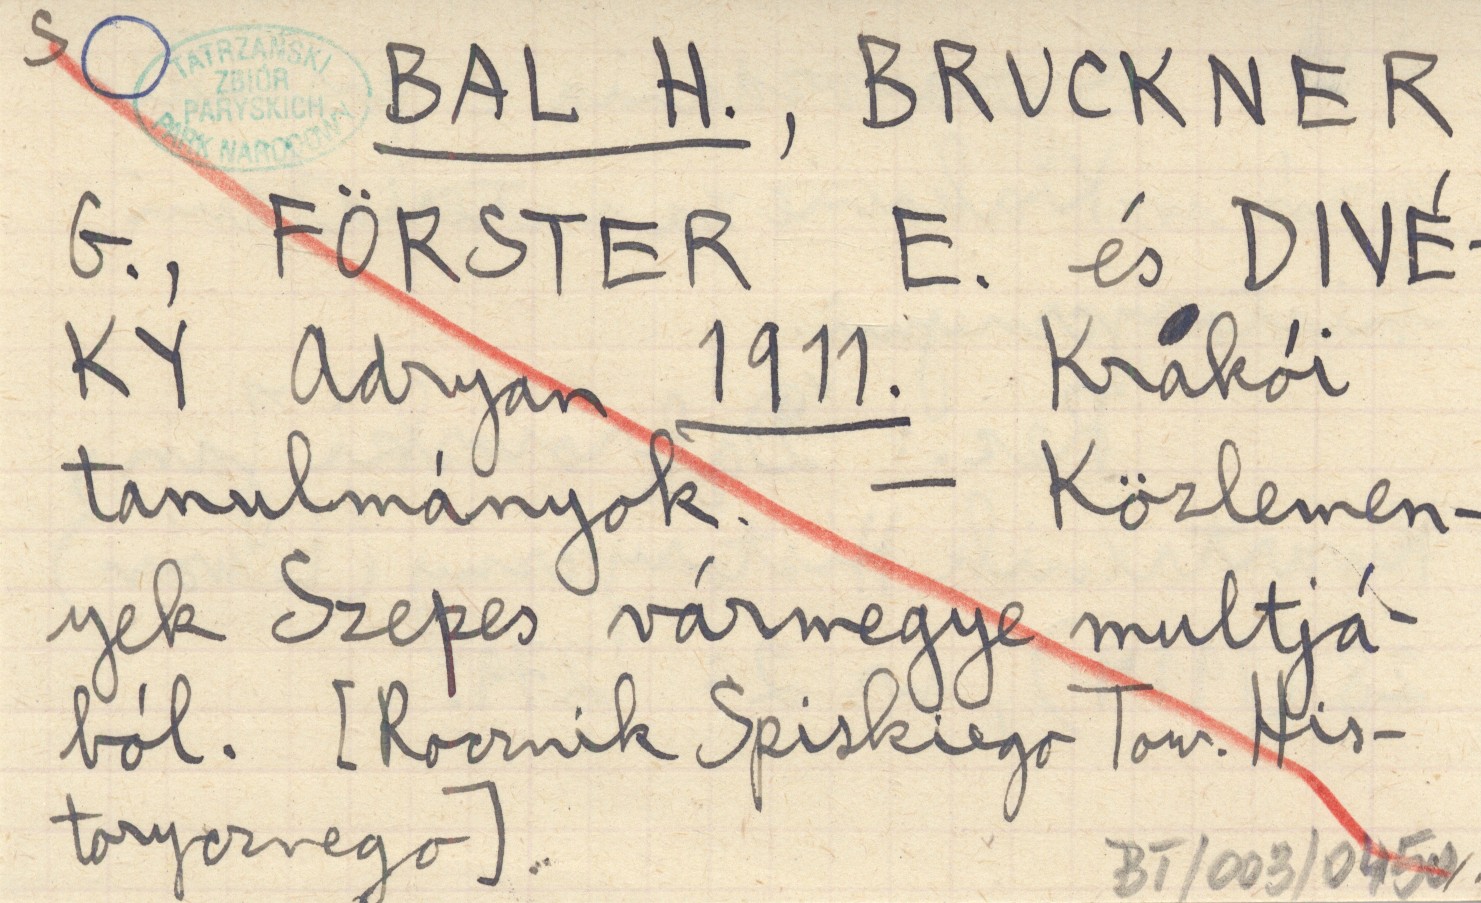 S
TATRZAŃSKI
ZBIÓR
PARYSKICH
PARK NARODOWY
BAL H., BRUCKNER
G., FÖRSTER E. és DIVÉ-
KY Adryan 1911. Krakói
tanulmányok. — Közlemen-
yek Szepes vármegye multjá-
ból. [Rocznik Spiskiego Tow. His-
torycznego].
BT/003/0450